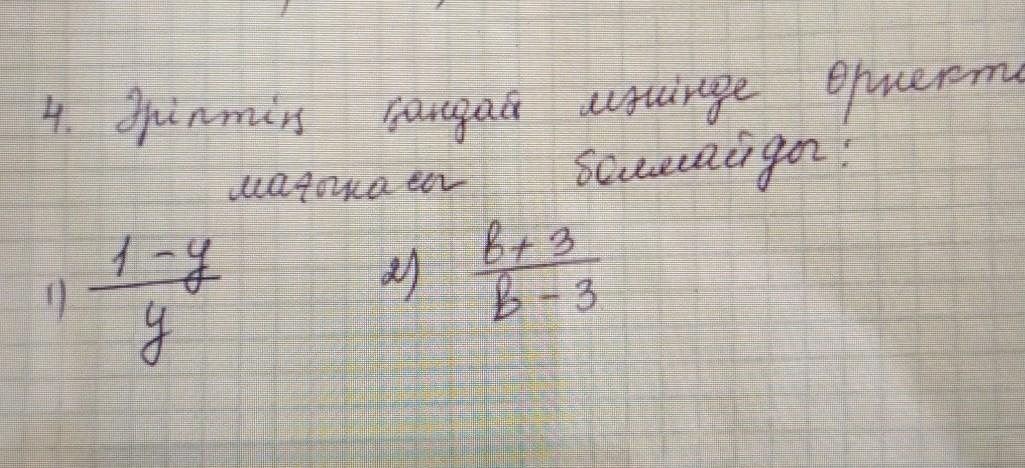 4. Әріптің қандай мәнінде өрнекті
мағынасы болмайды:
1) (1 - y)/y 2) (b + 3)/(b - 3)